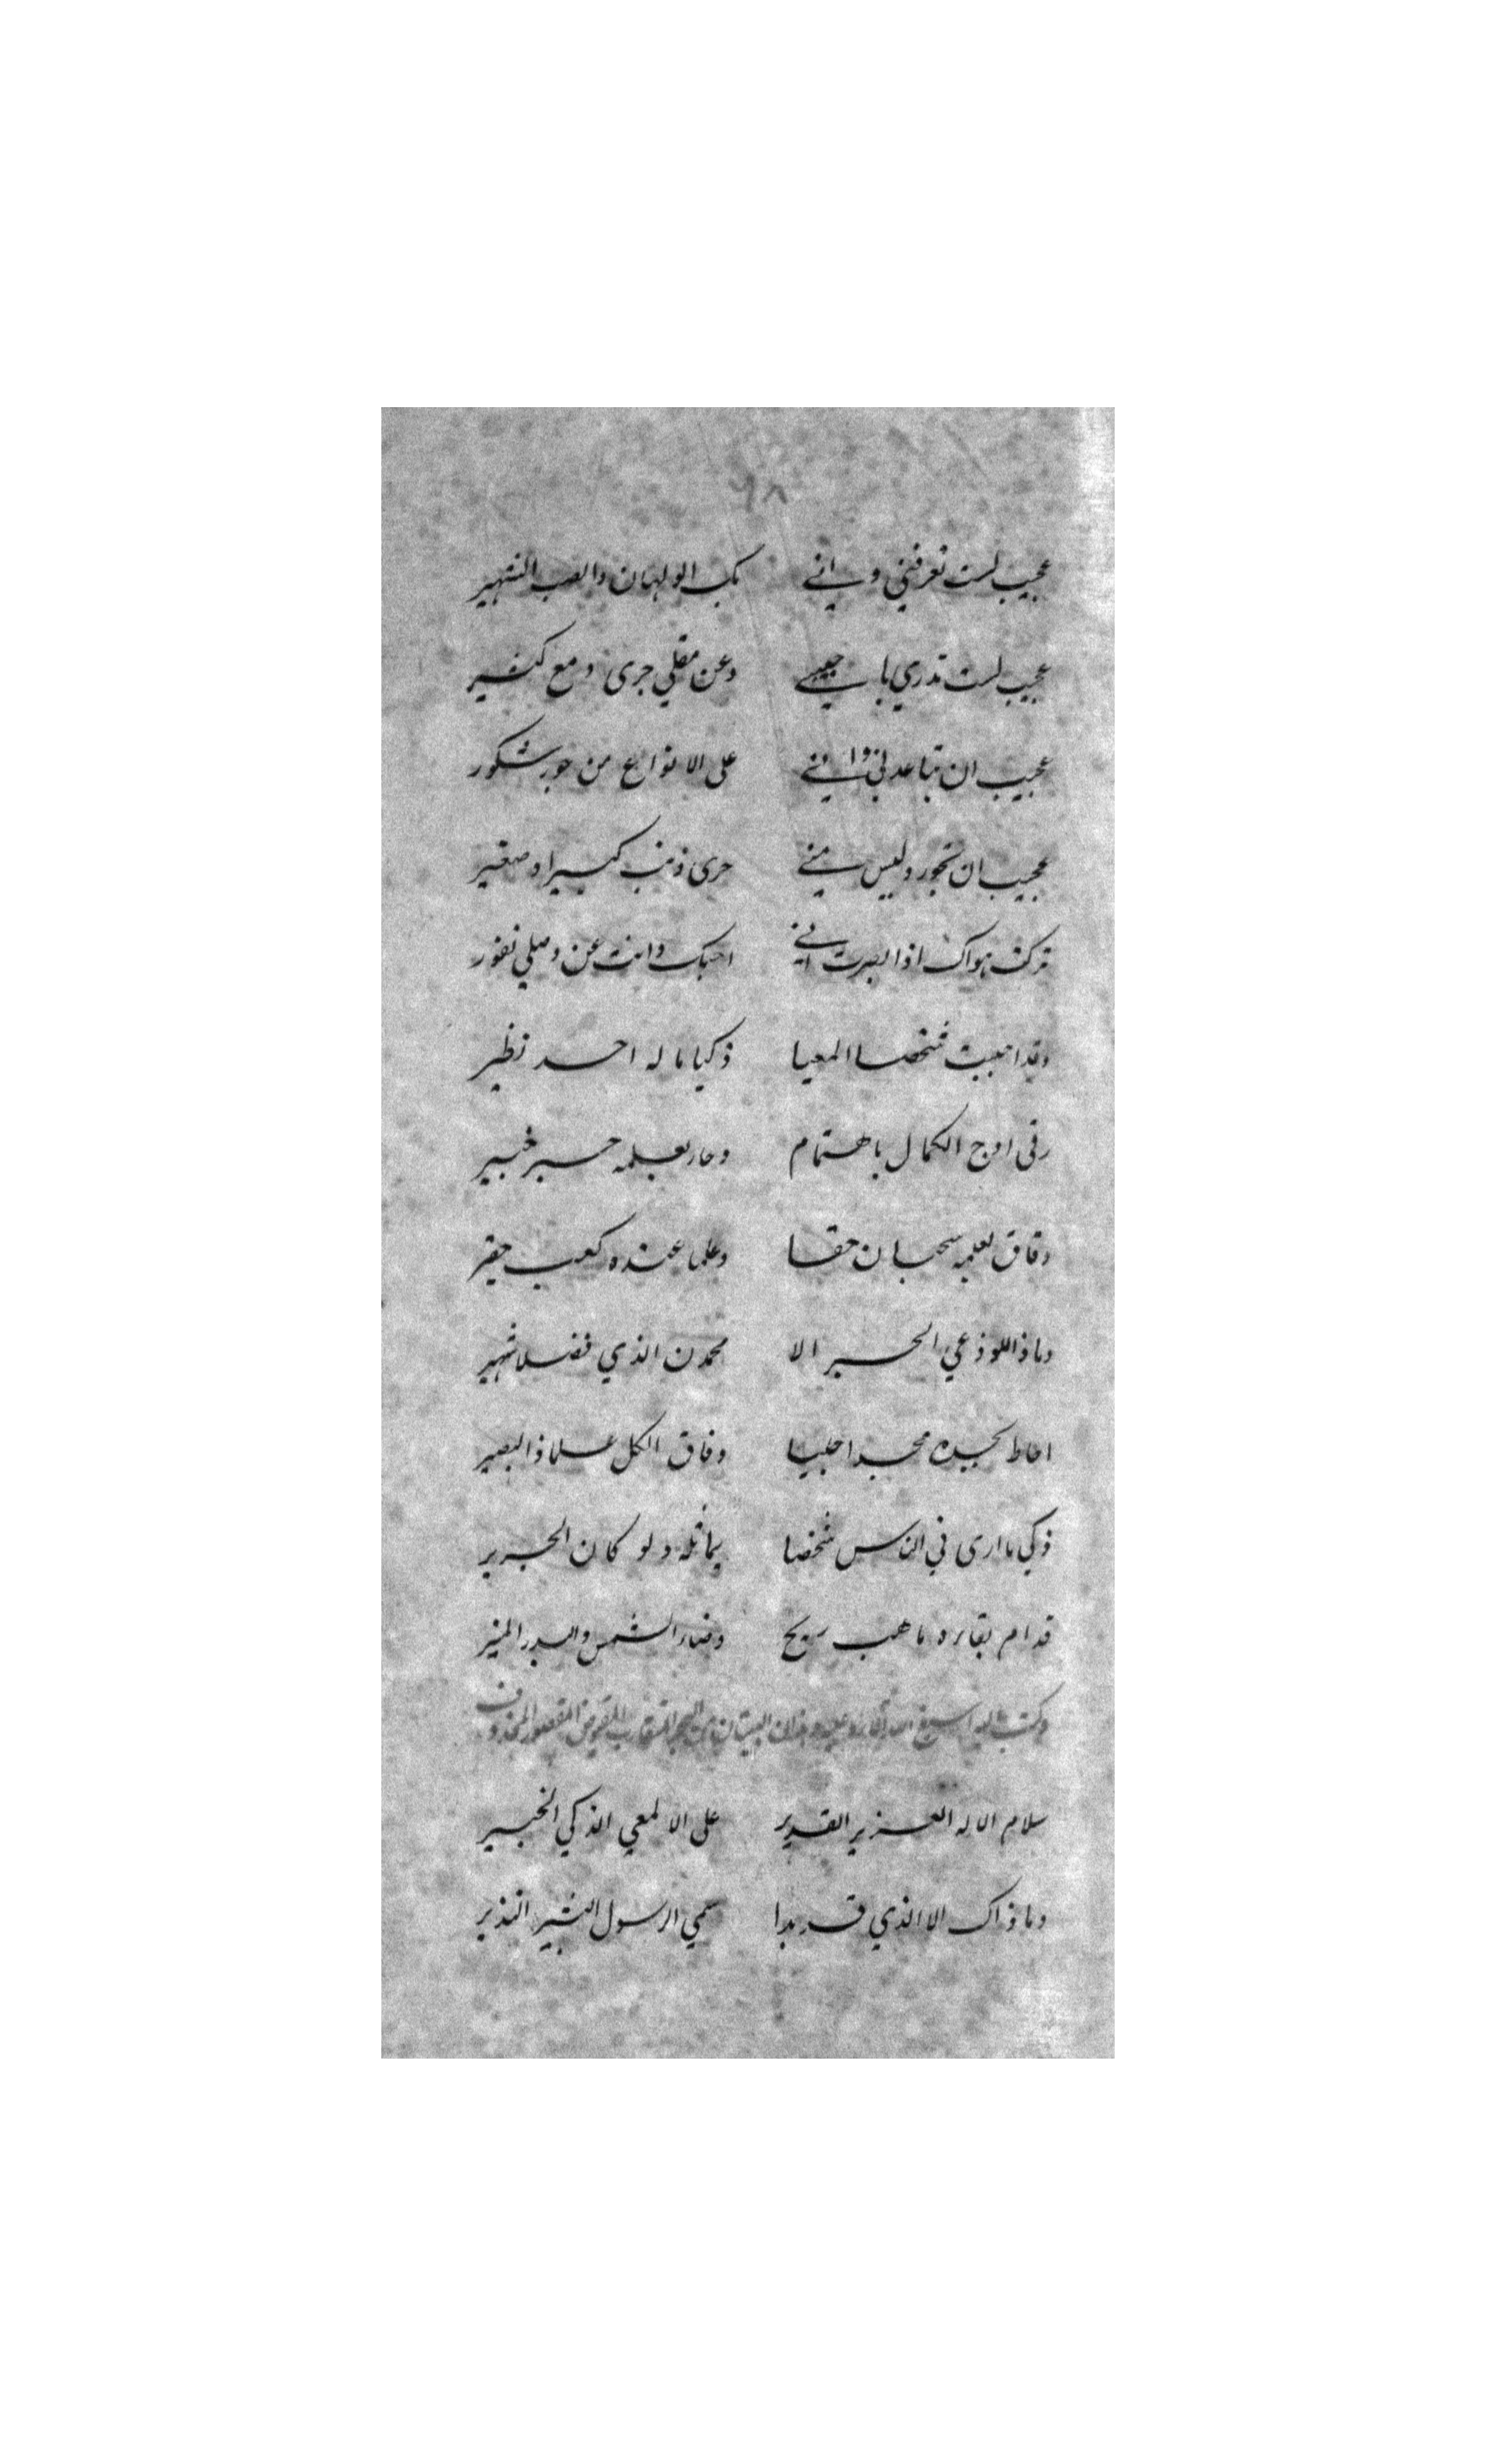 ٦٨
عجيب لست تعرفني واني بك الولهان والصب الشهير
عجيب لست تدري يا حبيبي وعن مقلي جرى دمع كثير
عجيب ان تباعدني واني على الانواع من جور شكور
عجيب ان تجور وليس مني جرى ذنب كبير او صغير
تركت هواك اذ ابصرت اني احبك وانت عن وصلي نفور
وقد احببت شخصا المعيا ذكيا ما له احد نظير
رقى اوج الكمال باهتمام وحار بعلمه حبر خبير
وفاق بعلمه سحبان حقا وعلما عنده كعب حقير
وما ذا اللوذعي الحبر الا محمدن الذي فضلا شهير
احاط بجده مجدا جليا وفاق الكل علما ذا البصير
ذكي ما ارى في الناس شخصا يماثله ولو كان الجرير
فدام بقاؤه ما هب ريح وضاء الشمس والبدر المنير
وكتب اليه اسبغ الله عليه وهذان البيتان من البحر المتقارب المقصور المحذوف
سلام الاله العزيز القدير على الالمعي الذكي الخبير
وما ذاك الا الذي قد بدا سمي الرسول البشير النذير